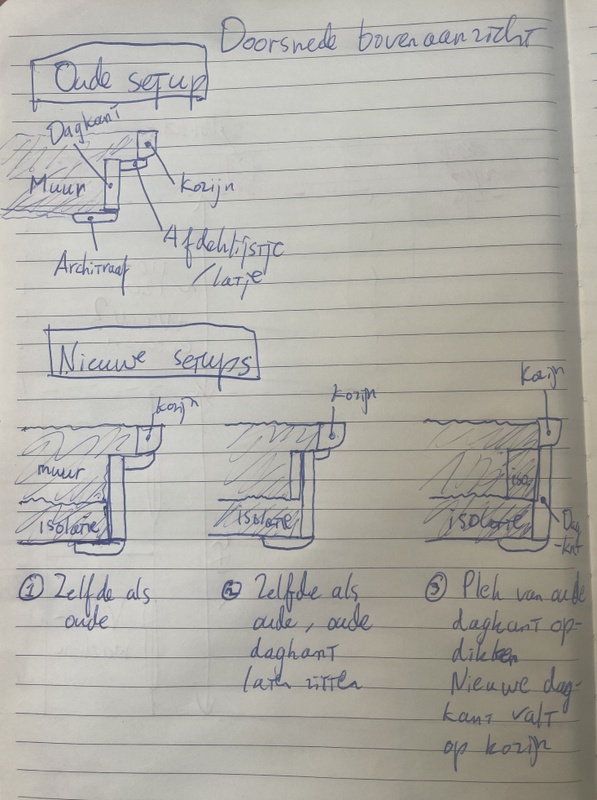 Doorsnede bovenaanzicht
Oude setup
Dagkant
Muur
Kozijn
Afdeklijstje
/latje
Architraaf
Nieuwe setups
kozijn
kozijn
Kozijn
muur
isolatie
isolatie
iso
isolatie
Dag
-kant
① Zelfde als
oude
② Zelfde als
oude, oude
dagkant
laten zitten
③ Plek van oude
dagkant op-
dikken
Nieuwe dag-
kant valt
op kozijn